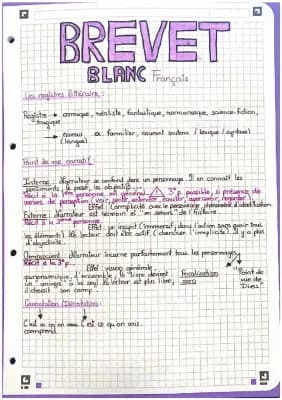 BREVET
BLANC Français
Les registres littéraire :
Registre → comique, réaliste, fantastique, science-fiction,
tragique
→ niveau ex : familier, courant soutenu (lexique / syntaxe)
(langue)
Point de vue narratif
Interne : Narrateur se confond dans un personnage. Il en connaît les
sentiments, le passé, les objectifs
Récit à la 1ère personne en général 3e p. possible, si présence de
verbes de perception (voir, sentir, entendre, écouter, apercevoir, regarder)
Effet : (complicité avec le personnage, phénomène d'identification
Externe : Narrateur est témoin et "en dehors" de l'histoire.
Récit à la personne
Effet : (immersif, dans l'action sans avoir tous
les éléments). Le lecteur doit être actif (chercher l'implicite). Il y a plus
d'objectivité.
Omniscient : Narrateur incarne parfaitement tous les personnages
Récit à la 3e p.
Effet : vision générale,
d'ensemble, le livre devient
un "univers" à lui seul. Le lecteur est plus libre,
il choisit son camp
Focalisation
zéro
Point de
vue de
Dieu
Connotation / Dénotation :
C'est ce qu'on C'est ce qu'on vois.
comprend